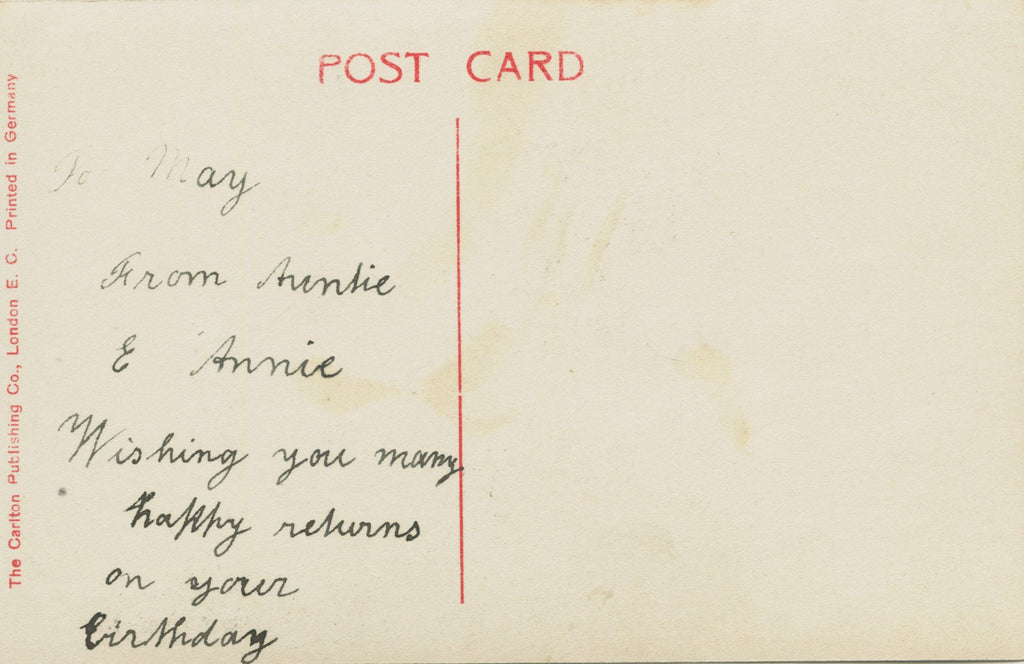 POST CARD
The Carlton Publishing Co., London E. C. Printed in Germany
To May
From Auntie
E Annie
Wishing you many
happy returns
on your
birthday